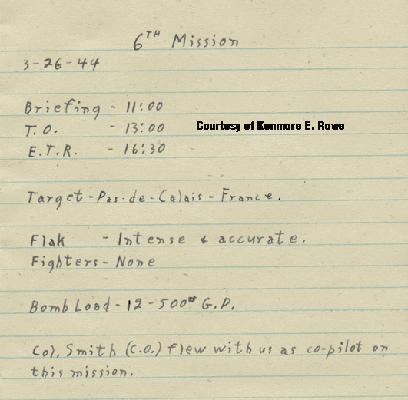 6TH Mission
3-26-44
Briefing - 11:00
T.O. - 13:00
Courtesy of Kenmore E. Rowe
E.T.R. - 16:30
Target - Pas-de-Calais - France.
Flak - Intense & accurate.
Fighters - None
Bomb Load - 12-500# G.P.
Col. Smith (C.O.) flew with us as co-pilot on
this mission.